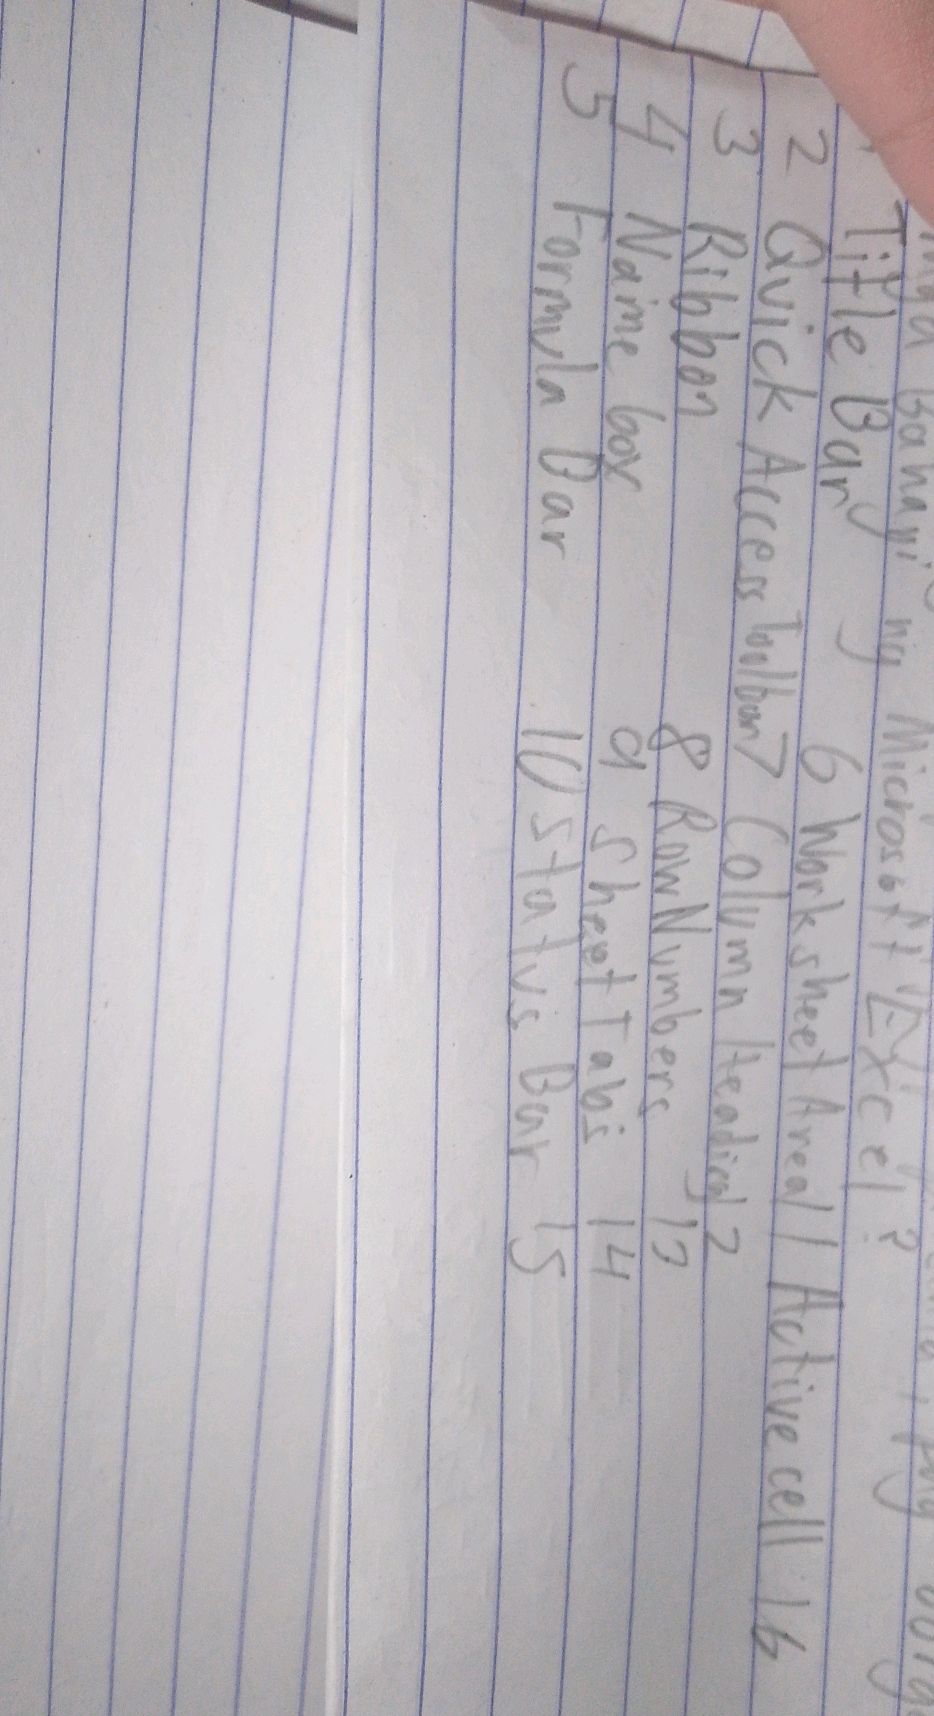 mga Bahagi ng Microsoft Excel?
1 Title Bar 6 Worksheet Area 11 Active cell 16
2 Quick Access Toolbar 7 Column Heading 12
3 Ribbon 8 Row Numbers 13
4 Name box 9 Sheet Tabs 14
5 Formula Bar 10 Status Bar 15